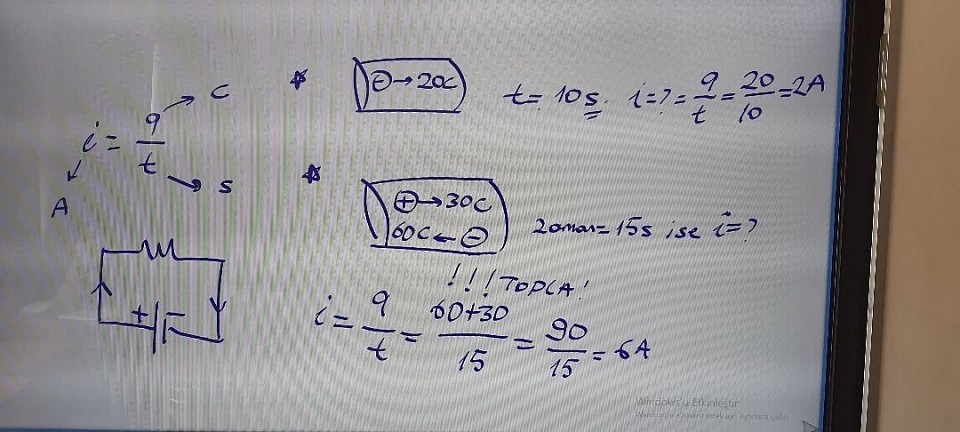 i = q/t
C
s
A
* ⊖→20C
t = 10s. i=? = q/t = 20/10 = 2A
* ⊕→30C
60C←⊖
Zaman = 15s ise i=?
!!! TOPLA!
i = q/t = 60+30/15 = 90/15 = 6A
+ -
Windows'u Etkinleştir